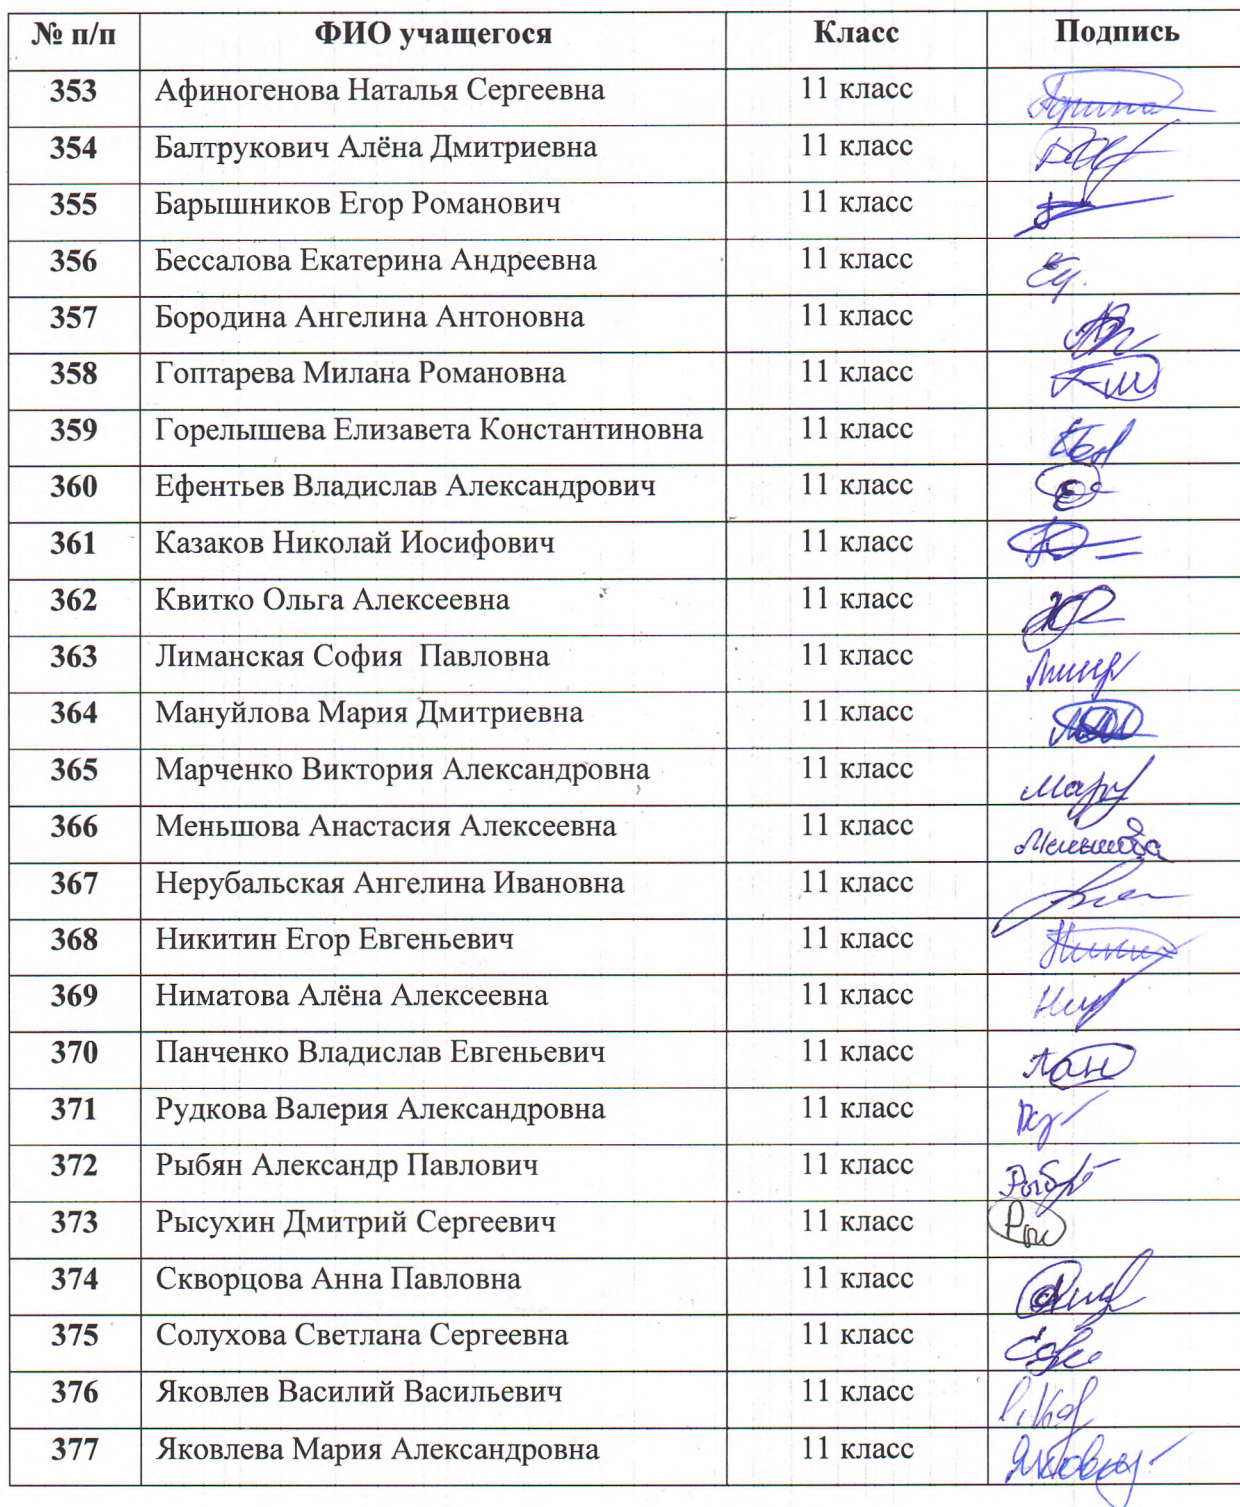 № п/п ФИО учащегося Класс Подпись
353 Афиногенова Наталья Сергеевна 11 класс
354 Балтрукович Алёна Дмитриевна 11 класс
355 Барышников Егор Романович 11 класс
356 Бессалова Екатерина Андреевна 11 класс
357 Бородина Ангелина Антоновна 11 класс
358 Гоптарева Милана Романовна 11 класс
359 Горелышева Елизавета Константиновна 11 класс
360 Ефентьев Владислав Александрович 11 класс
361 Казаков Николай Иосифович 11 класс
362 Квитко Ольга Алексеевна 11 класс
363 Лиманская София Павловна 11 класс
364 Мануйлова Мария Дмитриевна 11 класс
365 Марченко Виктория Александровна 11 класс
366 Меньшова Анастасия Алексеевна 11 класс Меньшова
367 Нерубальская Ангелина Ивановна 11 класс
368 Никитин Егор Евгеньевич 11 класс
369 Ниматова Алёна Алексеевна 11 класс
370 Панченко Владислав Евгеньевич 11 класс Пан
371 Рудкова Валерия Александровна 11 класс
372 Рыбян Александр Павлович 11 класс
373 Рысухин Дмитрий Сергеевич 11 класс
374 Скворцова Анна Павловна 11 класс
375 Солухова Светлана Сергеевна 11 класс
376 Яковлев Василий Васильевич 11 класс
377 Яковлева Мария Александровна 11 класс